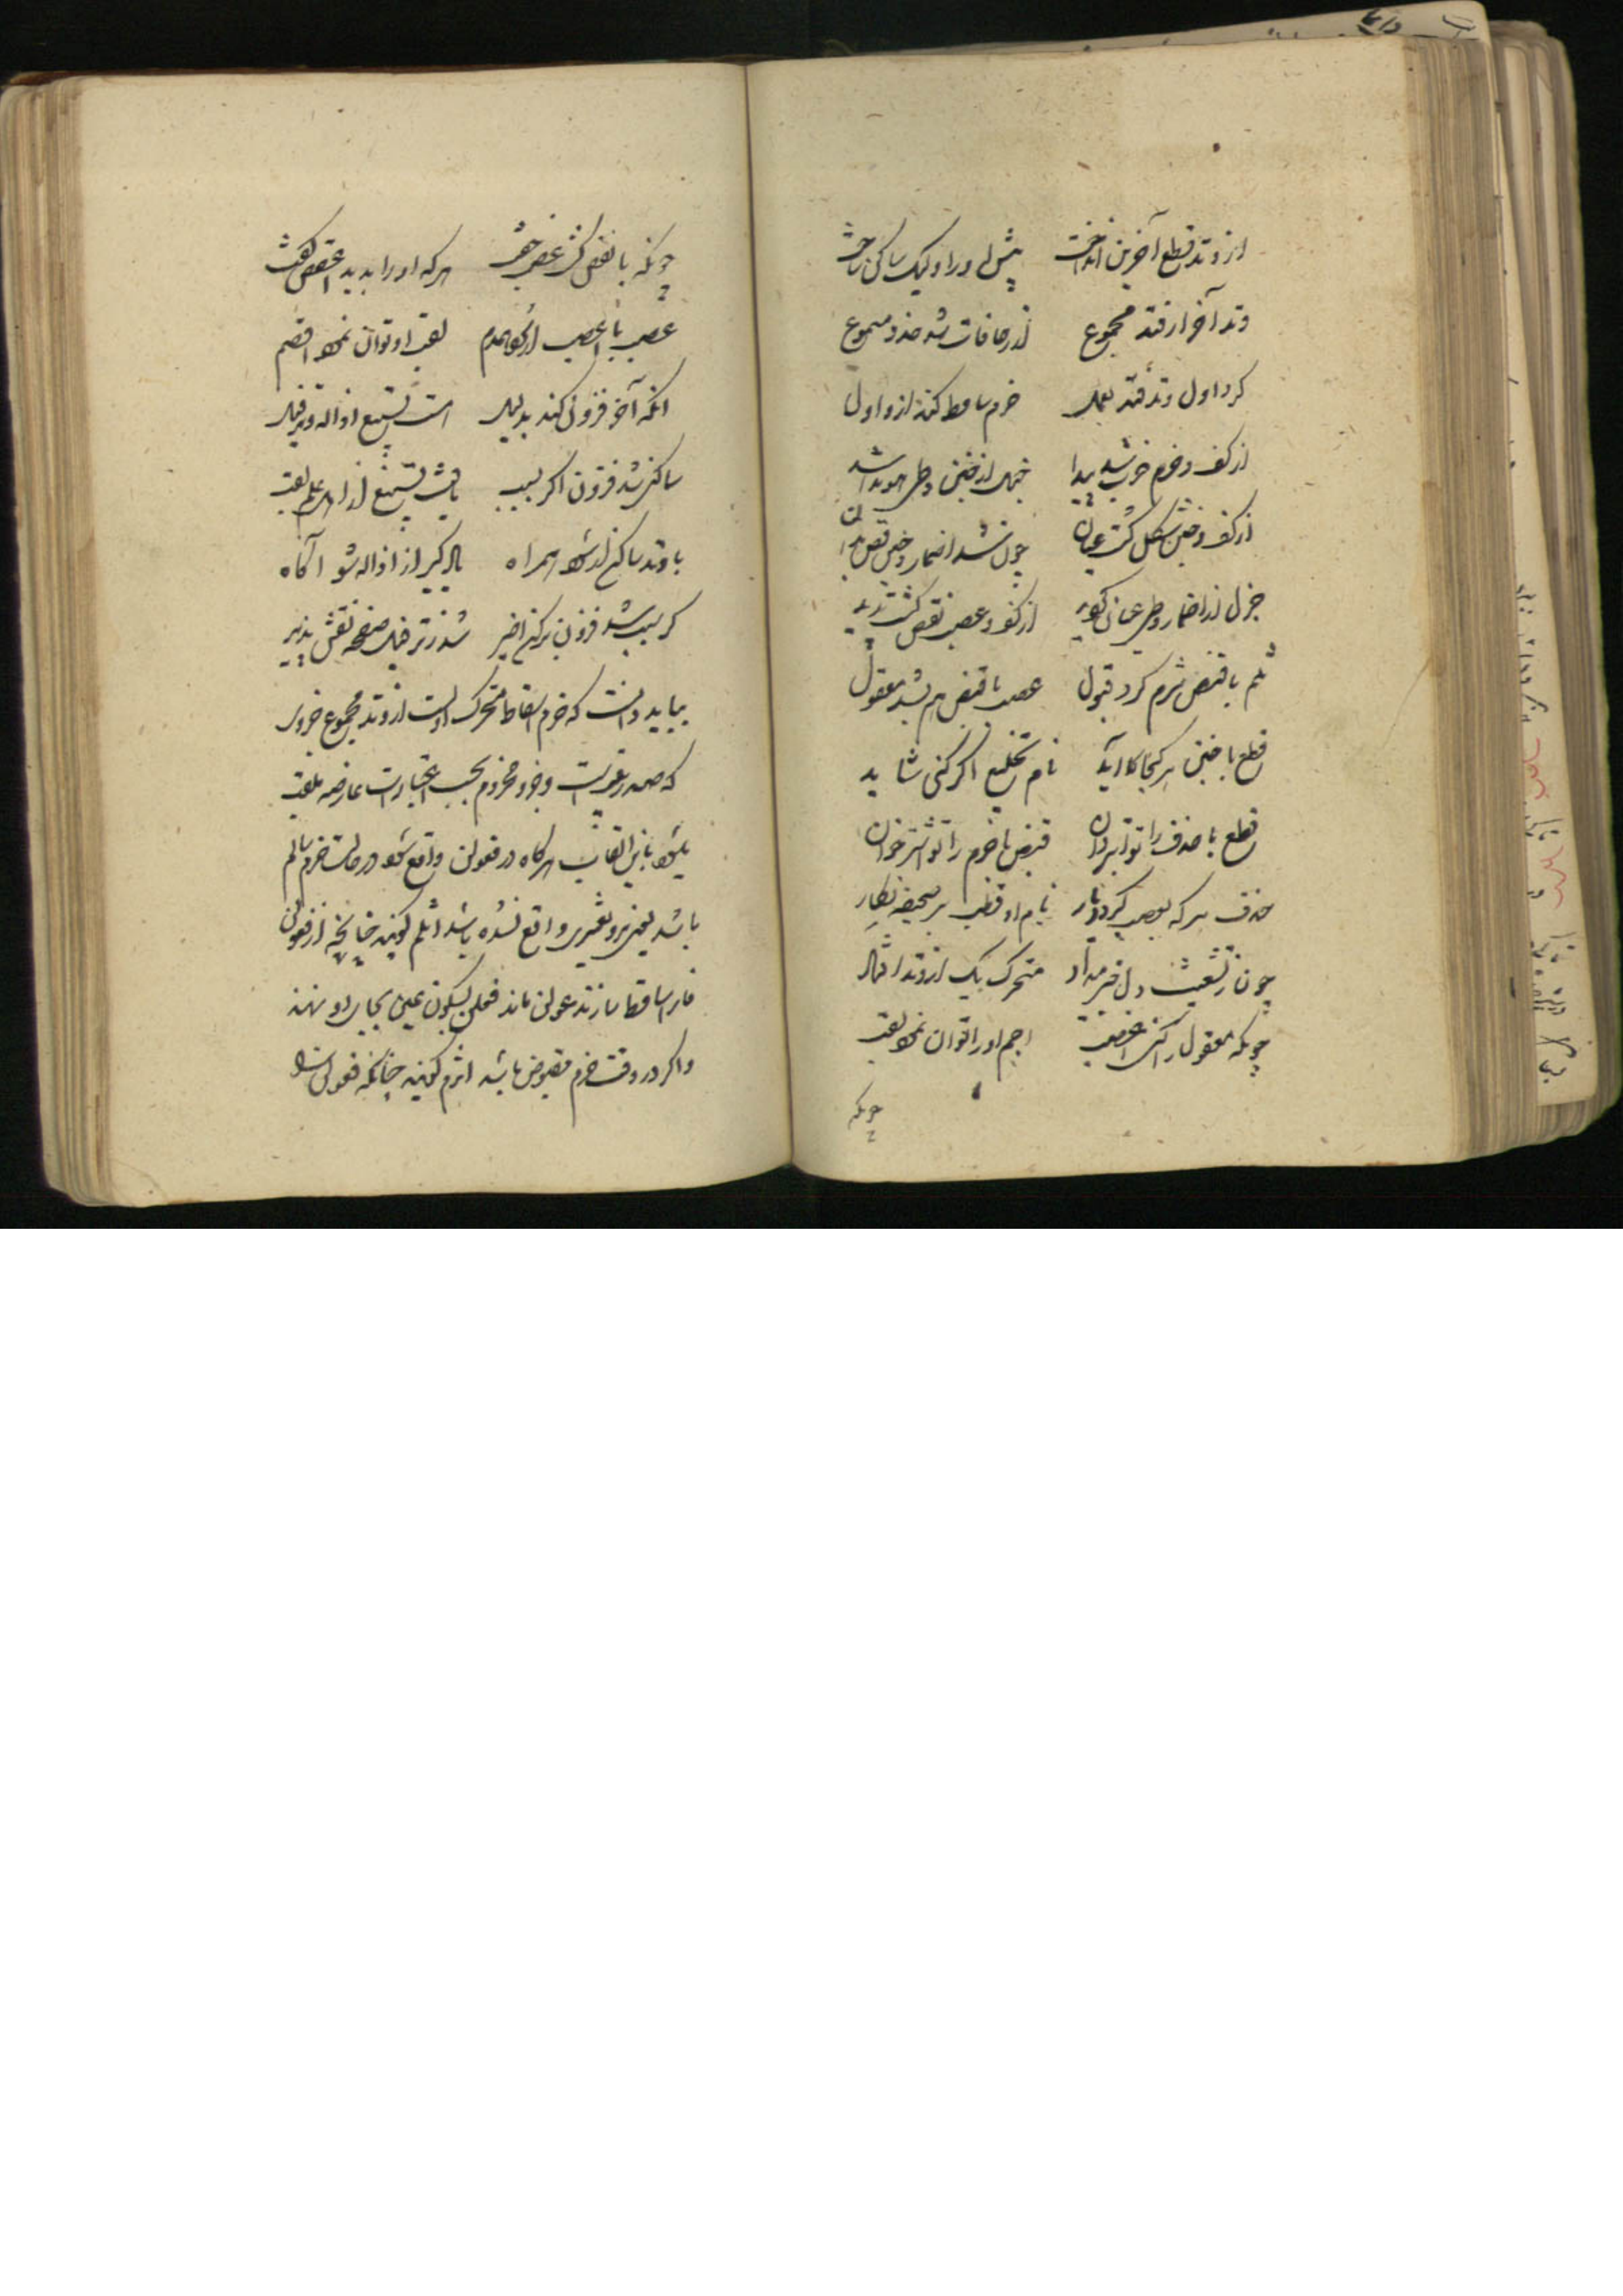 از وتد قطع آخرین انداخت پیش او را و لیک ساکن ساخت
وتد آخر ار فتد مجموع از زحافات شد حذذ مسموع
کرد اول وتد فتد بعمل خرم ساقط کند ازو اول
از کف و خرم خرب شد پیدا خبل از خبن و طی هویدا شد
از کف و خبن شکل گشت عیان چون شد اضمار و خبن وقص بدان
خزل از اضمار و طی عیان گوید از کف و عصب نقص گشت پدید
ثلم با قبض ثرم کرد قبول عصب با قبض هم شد معقول
قطع با خبن هر کجا کاید نام تخلیع اگر کنی شاید
قطع با حذف را تو ابتر دان قبض با خرم را تو اشتر خوان
حذف هر که بعصب گردد یار نام او قطف بر صحیفه نگار
چون ز تشعیث دل خبر میداد متحرک یک از وتد افتاد
چونکه معقول را کنی اعضب اجم او را توان نمود لقب
چونکه
چونکه با نقص گشت عضب جفت هر که او را بدید اعقص گفت
عصب با عضب ار بود همدم لقب او توان نمود اقصم
آنکه آخر فزونی کند بدلیل است تسبیغ و اذاله و ترفیل
ساکنی شد فزون اگر بسبب یافت تسبیغ از اهل علم لقب
با وتد ساکنی ار شود همراه یاد گیر از اذاله شو آگاه
گر سبب شد فزون برکن اخیر شد ز ترفیل صفحه نقش پذیر
بباید دانست که خرم اسقاط متحرک اولست از وتد مجموع جزوی
که صدر بیت است و جزو مخروم بحسب اختلاف عارضه ملقب
میشود باین القاب هرگاه در فعولن واقع شود در حالت خرم سالم
باشد یعنی درو تغییری واقع نشده باشد اثلم گویند چنانچه از فعولن
فا را ساقط سازند عولن ماند فعلن بسکون عین بجای او نهند
و اگر در وقت خرم مقبوض باشد اثرم گویند چنانکه فعولن را